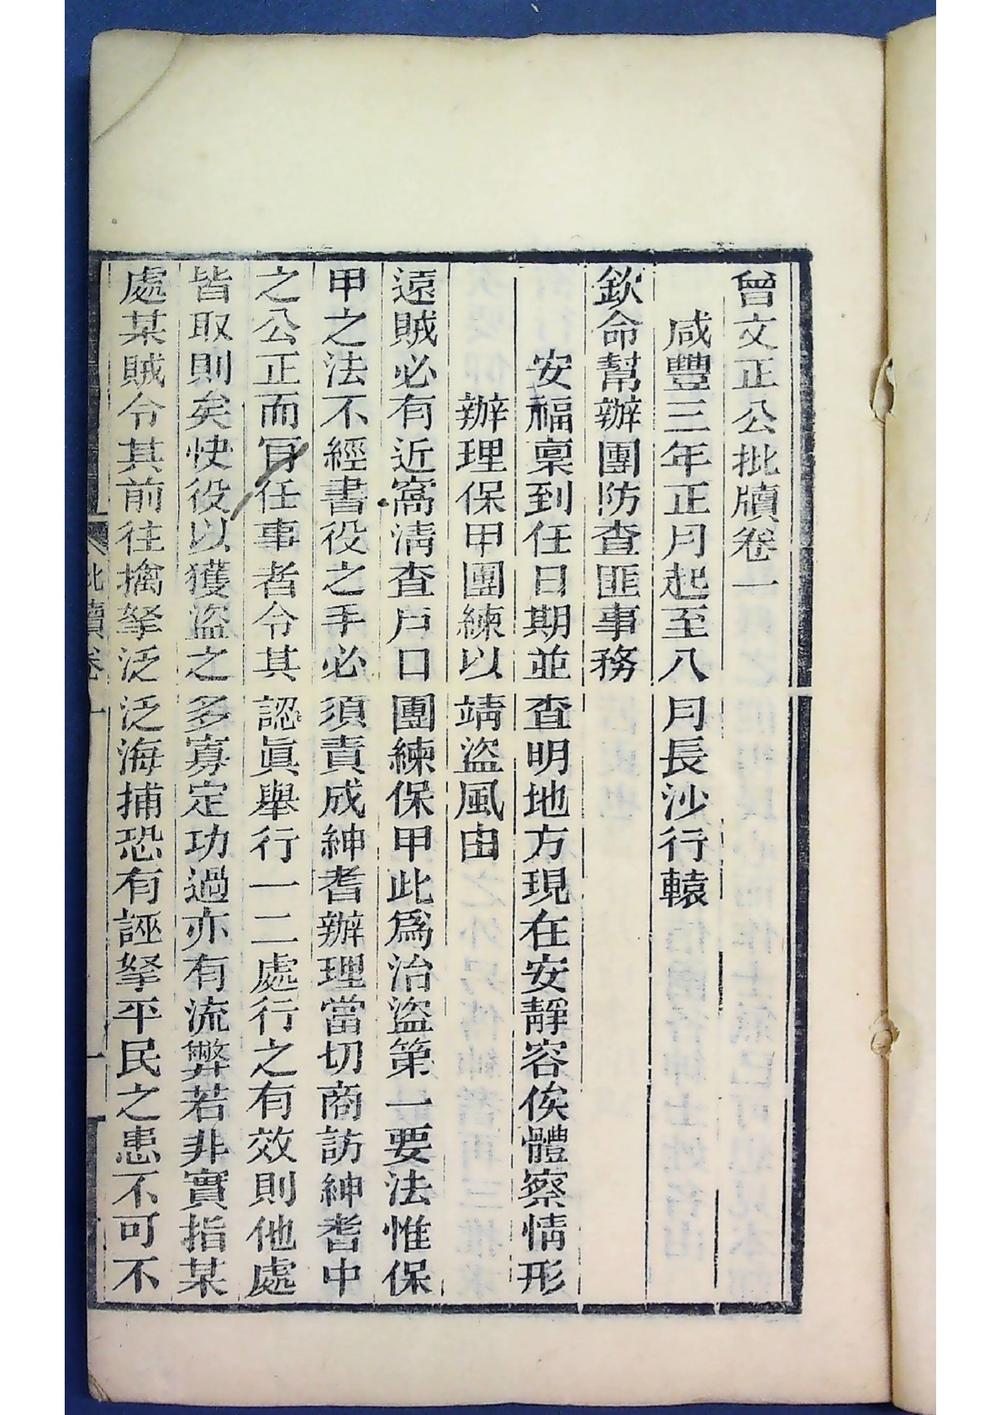 曾文正公批牘卷一
咸豐三年正月起至八月長沙行轅
欽命幫辦團防查匪事務
安福稟到任日期並查明地方現在安靜容俟體察情形
辦理保甲團練以靖盜風由
遠賊必有近窩清查戶口團練保甲此爲治盜第一要法惟保
甲之法不經書役之手必須責成紳耆辦理當切商訪紳耆中
之公正而肎任事者令其認眞舉行一二處行之有效則他處
皆取則矣快役以獲盜之多寡定功過亦有流弊若非實指某
處某賊令其前往擒拏泛泛海捕恐有誣拏平民之患不可不
批牘卷一
一